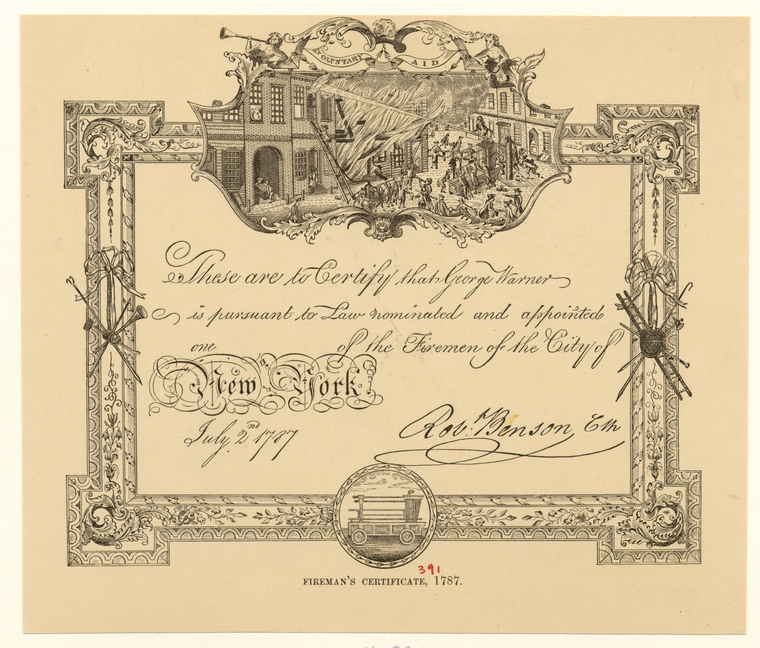 VOLUNTARY AID
These are to Certify that George Warner
is pursuant to Law nominated and appointed
one of the Firemen of the City of
New York
July, 2nd 1787
Robt. Benson, Clk
391
FIREMAN'S CERTIFICATE, 1787.